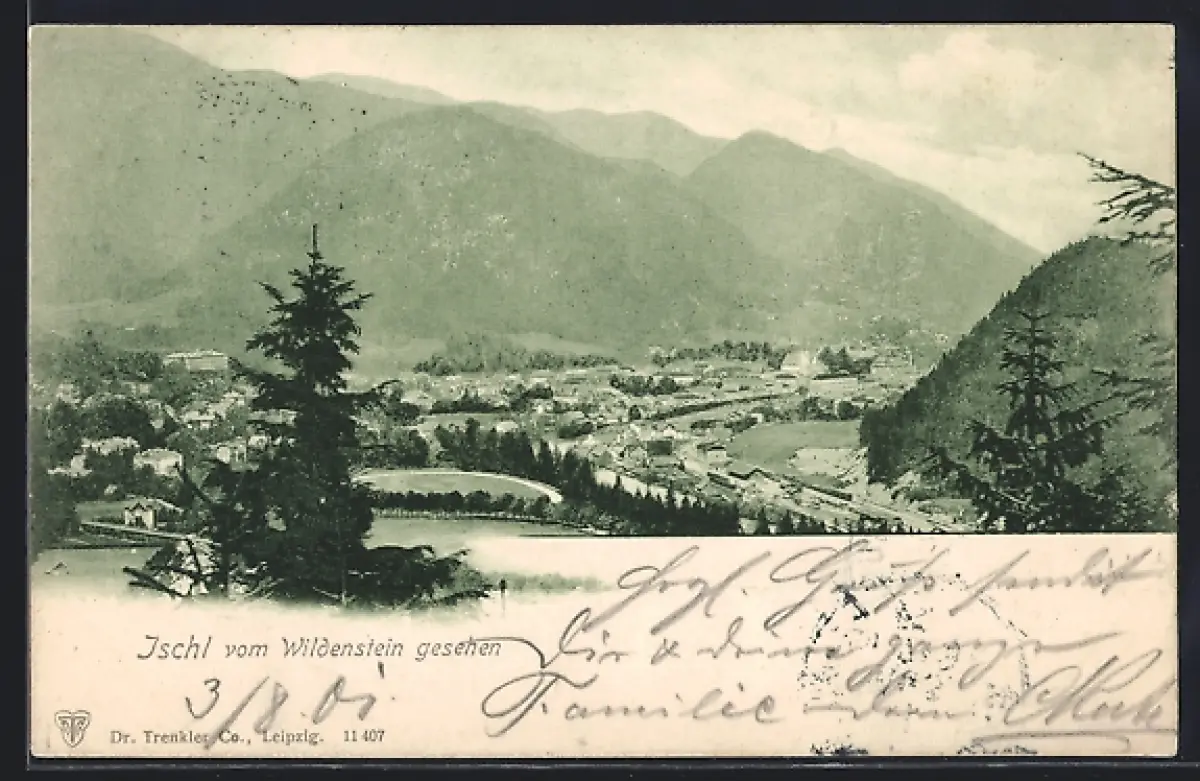 Hrzl. Gruß sendet
Ischl vom Wildenstein gesehen
Dir & deine ganze
3/8. 01.
Familie dein
Dr. Trenkler Co., Leipzig. 11 407